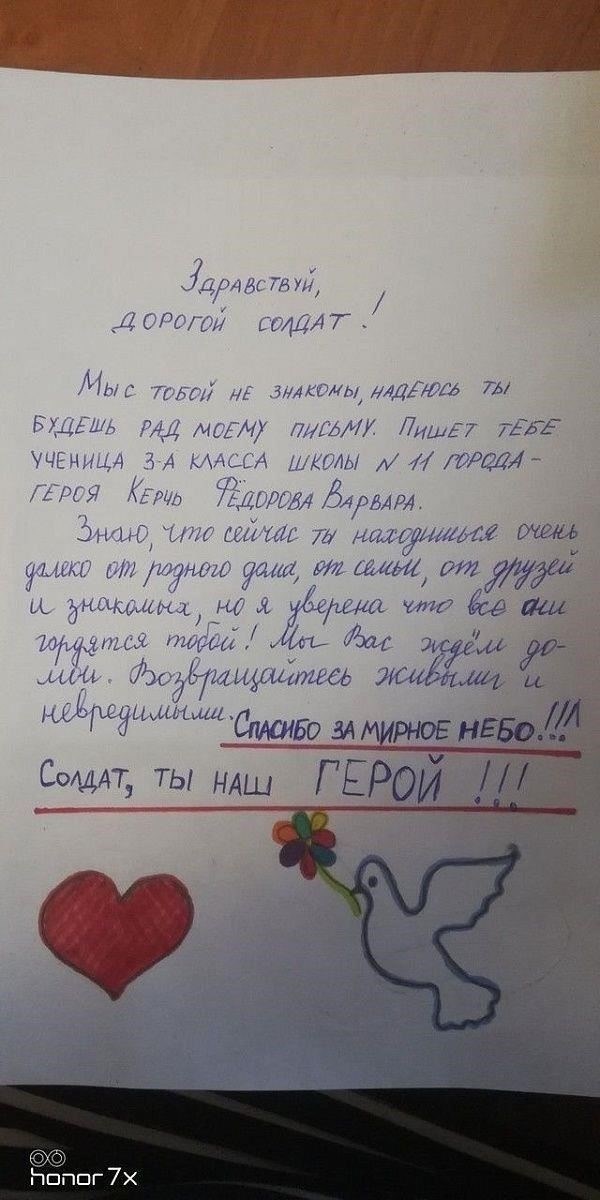 Здравствуй,
дорогой солдат!
Мы с тобой не знакомы, надеюсь ты
будешь рад моему письму. Пишет тебе
ученица 3-А класса школы N 11 города-
героя Керчь Фёдорова Варвара.
Знаю, что сейчас ты находишься очень
далеко от родного дома, от семьи, от друзей
и знакомых, но я уверена что все они
гордятся тобой! Мы Вас ждём до-
мой. Возвращайтесь живыми и
невредимыми.
Спасибо за мирное небо!!!
Солдат, ты наш ГЕРОЙ!!!
honor 7x